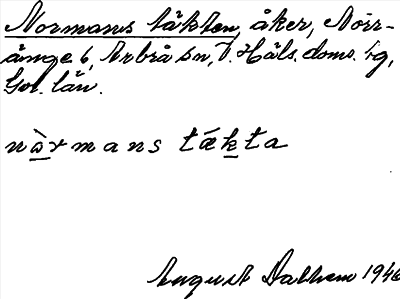 Normans täkten, åker, Norr-
änge 6, Arbrå sn, V. Häls. doms. tg,
Gvl. län.
nårmans tækta
August Dalhem 1946